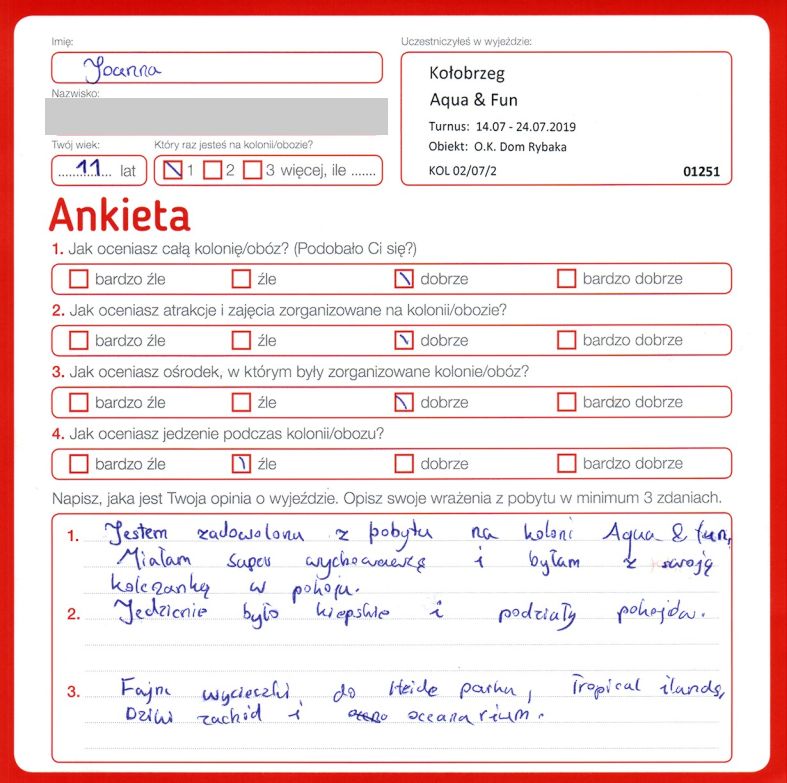 Imię:
Joanna
Nazwisko:
Twój wiek:
11 lat
Który raz jesteś na kolonii/obozie?
1 2 3 więcej, ile .......
Uczestniczyłeś w wyjeździe:
Kołobrzeg
Aqua & Fun
Turnus: 14.07 - 24.07.2019
Obiekt: O.K. Dom Rybaka
KOL 02/07/2 01251
Ankieta
1. Jak oceniasz całą kolonię/obóz? (Podobało Ci się?)
bardzo źle źle dobrze bardzo dobrze
2. Jak oceniasz atrakcje i zajęcia zorganizowane na kolonii/obozie?
bardzo źle źle dobrze bardzo dobrze
3. Jak oceniasz ośrodek, w którym były zorganizowane kolonie/obóz?
bardzo źle źle dobrze bardzo dobrze
4. Jak oceniasz jedzenie podczas kolonii/obozu?
bardzo źle źle dobrze bardzo dobrze
Napisz, jaka jest Twoja opinia o wyjeździe. Opisz swoje wrażenia z pobytu w minimum 3 zdaniach.
1. Jestem zadowolona z pobytu na koloni Aqua & fun,
Miałam super wychowawczę i byłam z swoją
koleżanką w pokoju.
2. Jedzienie było kiepskie i podziały pokojów.
3. Fajne wycieczki do Heide parku, Tropical ilands,
Dziki zachód i oceanarium.